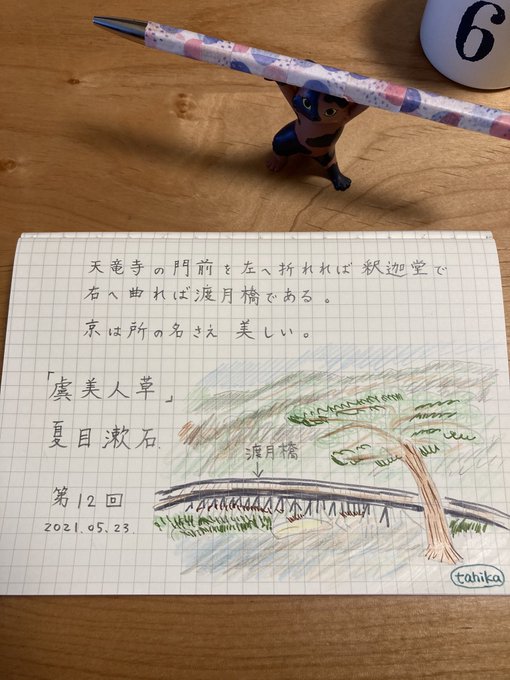 6
天竜寺の門前を左へ折れれば釈迦堂で
右へ曲れば渡月橋である。
京は所の名さえ美しい。
「虞美人草」
夏目漱石.
渡月橋
第12回
2021.05.23.
tahika